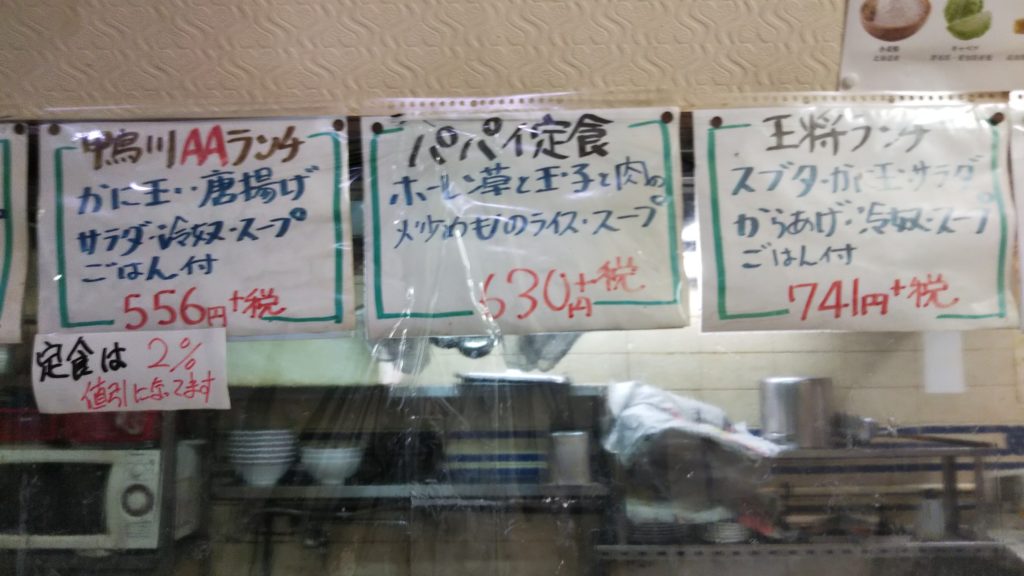 鴨川AAランチ
かに玉・唐揚げ
サラダ・冷奴・スープ
ごはん付
556円+税
定食は2%
値引になってます
パパイ定食
ホーレン草と玉子と肉の
炒めものライス・スープ
630円+税
王将ランチ
スブタ・かに玉・サラダ
からあげ・冷奴・スープ
ごはん付
741円+税
キャベツ